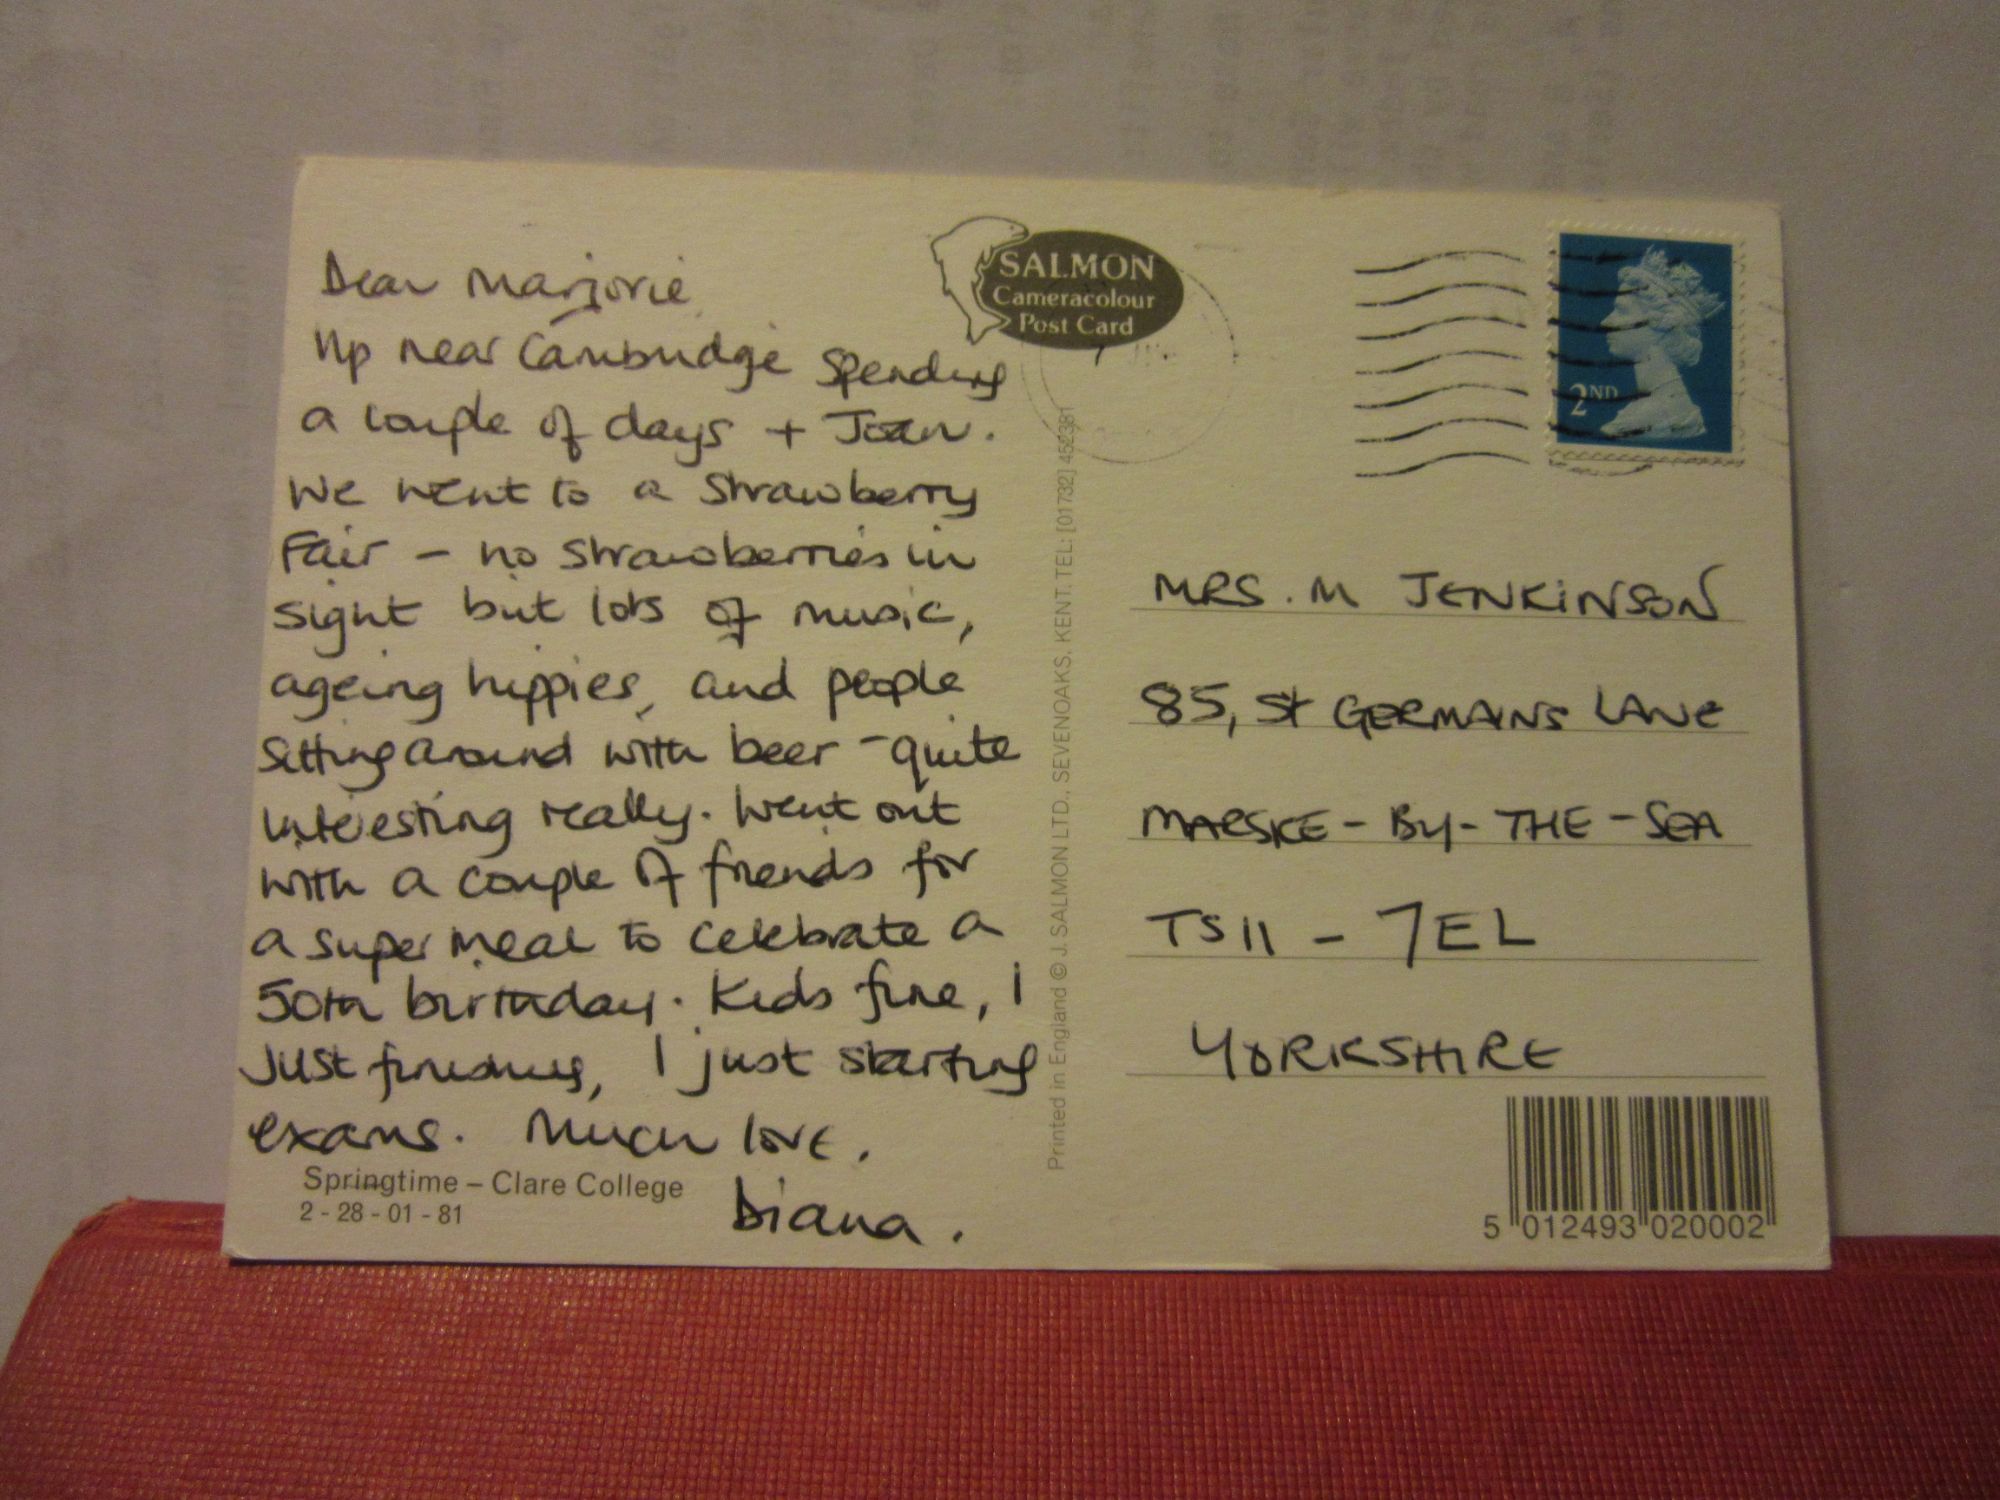 Dear Marjorie
Up near Cambridge spending
a couple of days + Joan.
We went to a Strawberry
Fair - no strawberries in
sight but lots of music,
ageing hippies, and people
sitting around with beer - quite
interesting really. Went out
with a couple of friends for
a super meal to celebrate a
50th birthday. Kids fine, 1
just finishing, 1 just starting
exams. Much love.
Diana.
Springtime – Clare College
2 - 28 - 01 - 81
SALMON
Cameracolour
Post Card
Printed in England © J. SALMON LTD., SEVENOAKS, KENT. TEL: [01732] 452381
2ND
MRS. M JENKINSON
85, St GERMAINS LANE
MARSKE - BY - THE - SEA
TS11 - 7EL
YORKSHIRE
5 012493 020002